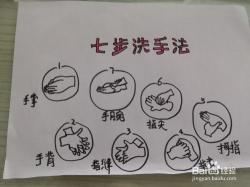 七步洗手法
1
7
6
5
手掌
手腕
指尖
拇指
2
3
4
手背
指缝
Baidu经验
jingyan.baidu.com